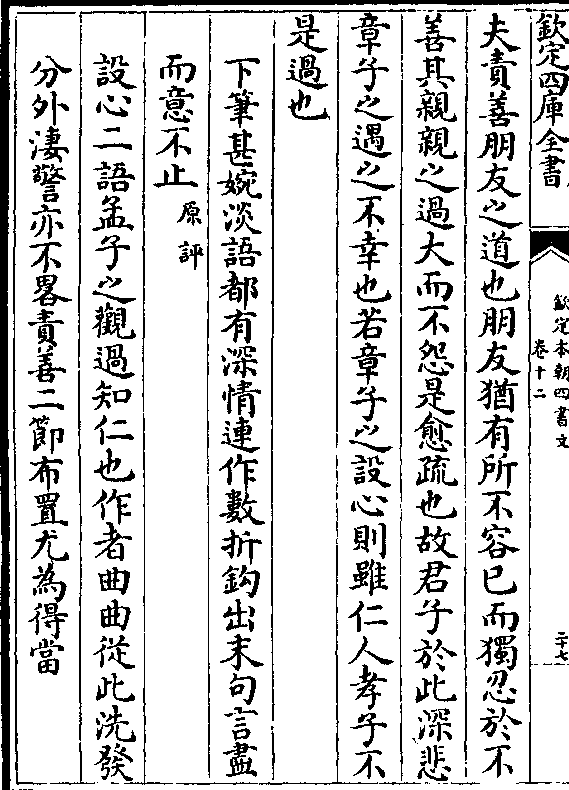 欽定四庫全書
欽定本朝四書文
卷十二
二十七
夫責善朋友之道也朋友猶有所不容已而獨忍於不
善其親親之過大而不怨是愈疏也故君子於此深悲
章子之遇之不幸也若章子之設心則雖仁人孝子不
是過也
下筆甚婉淡語都有深情連作數折鈎出末句言盡
而意不止原評
設心二語孟子之觀過知仁也作者曲曲從此洗發
分外淒警亦不畧責善二節布置尤為得當